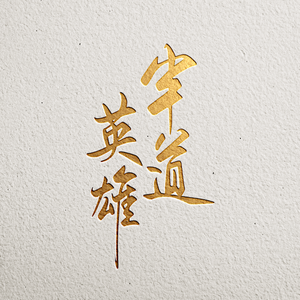 半道
英雄